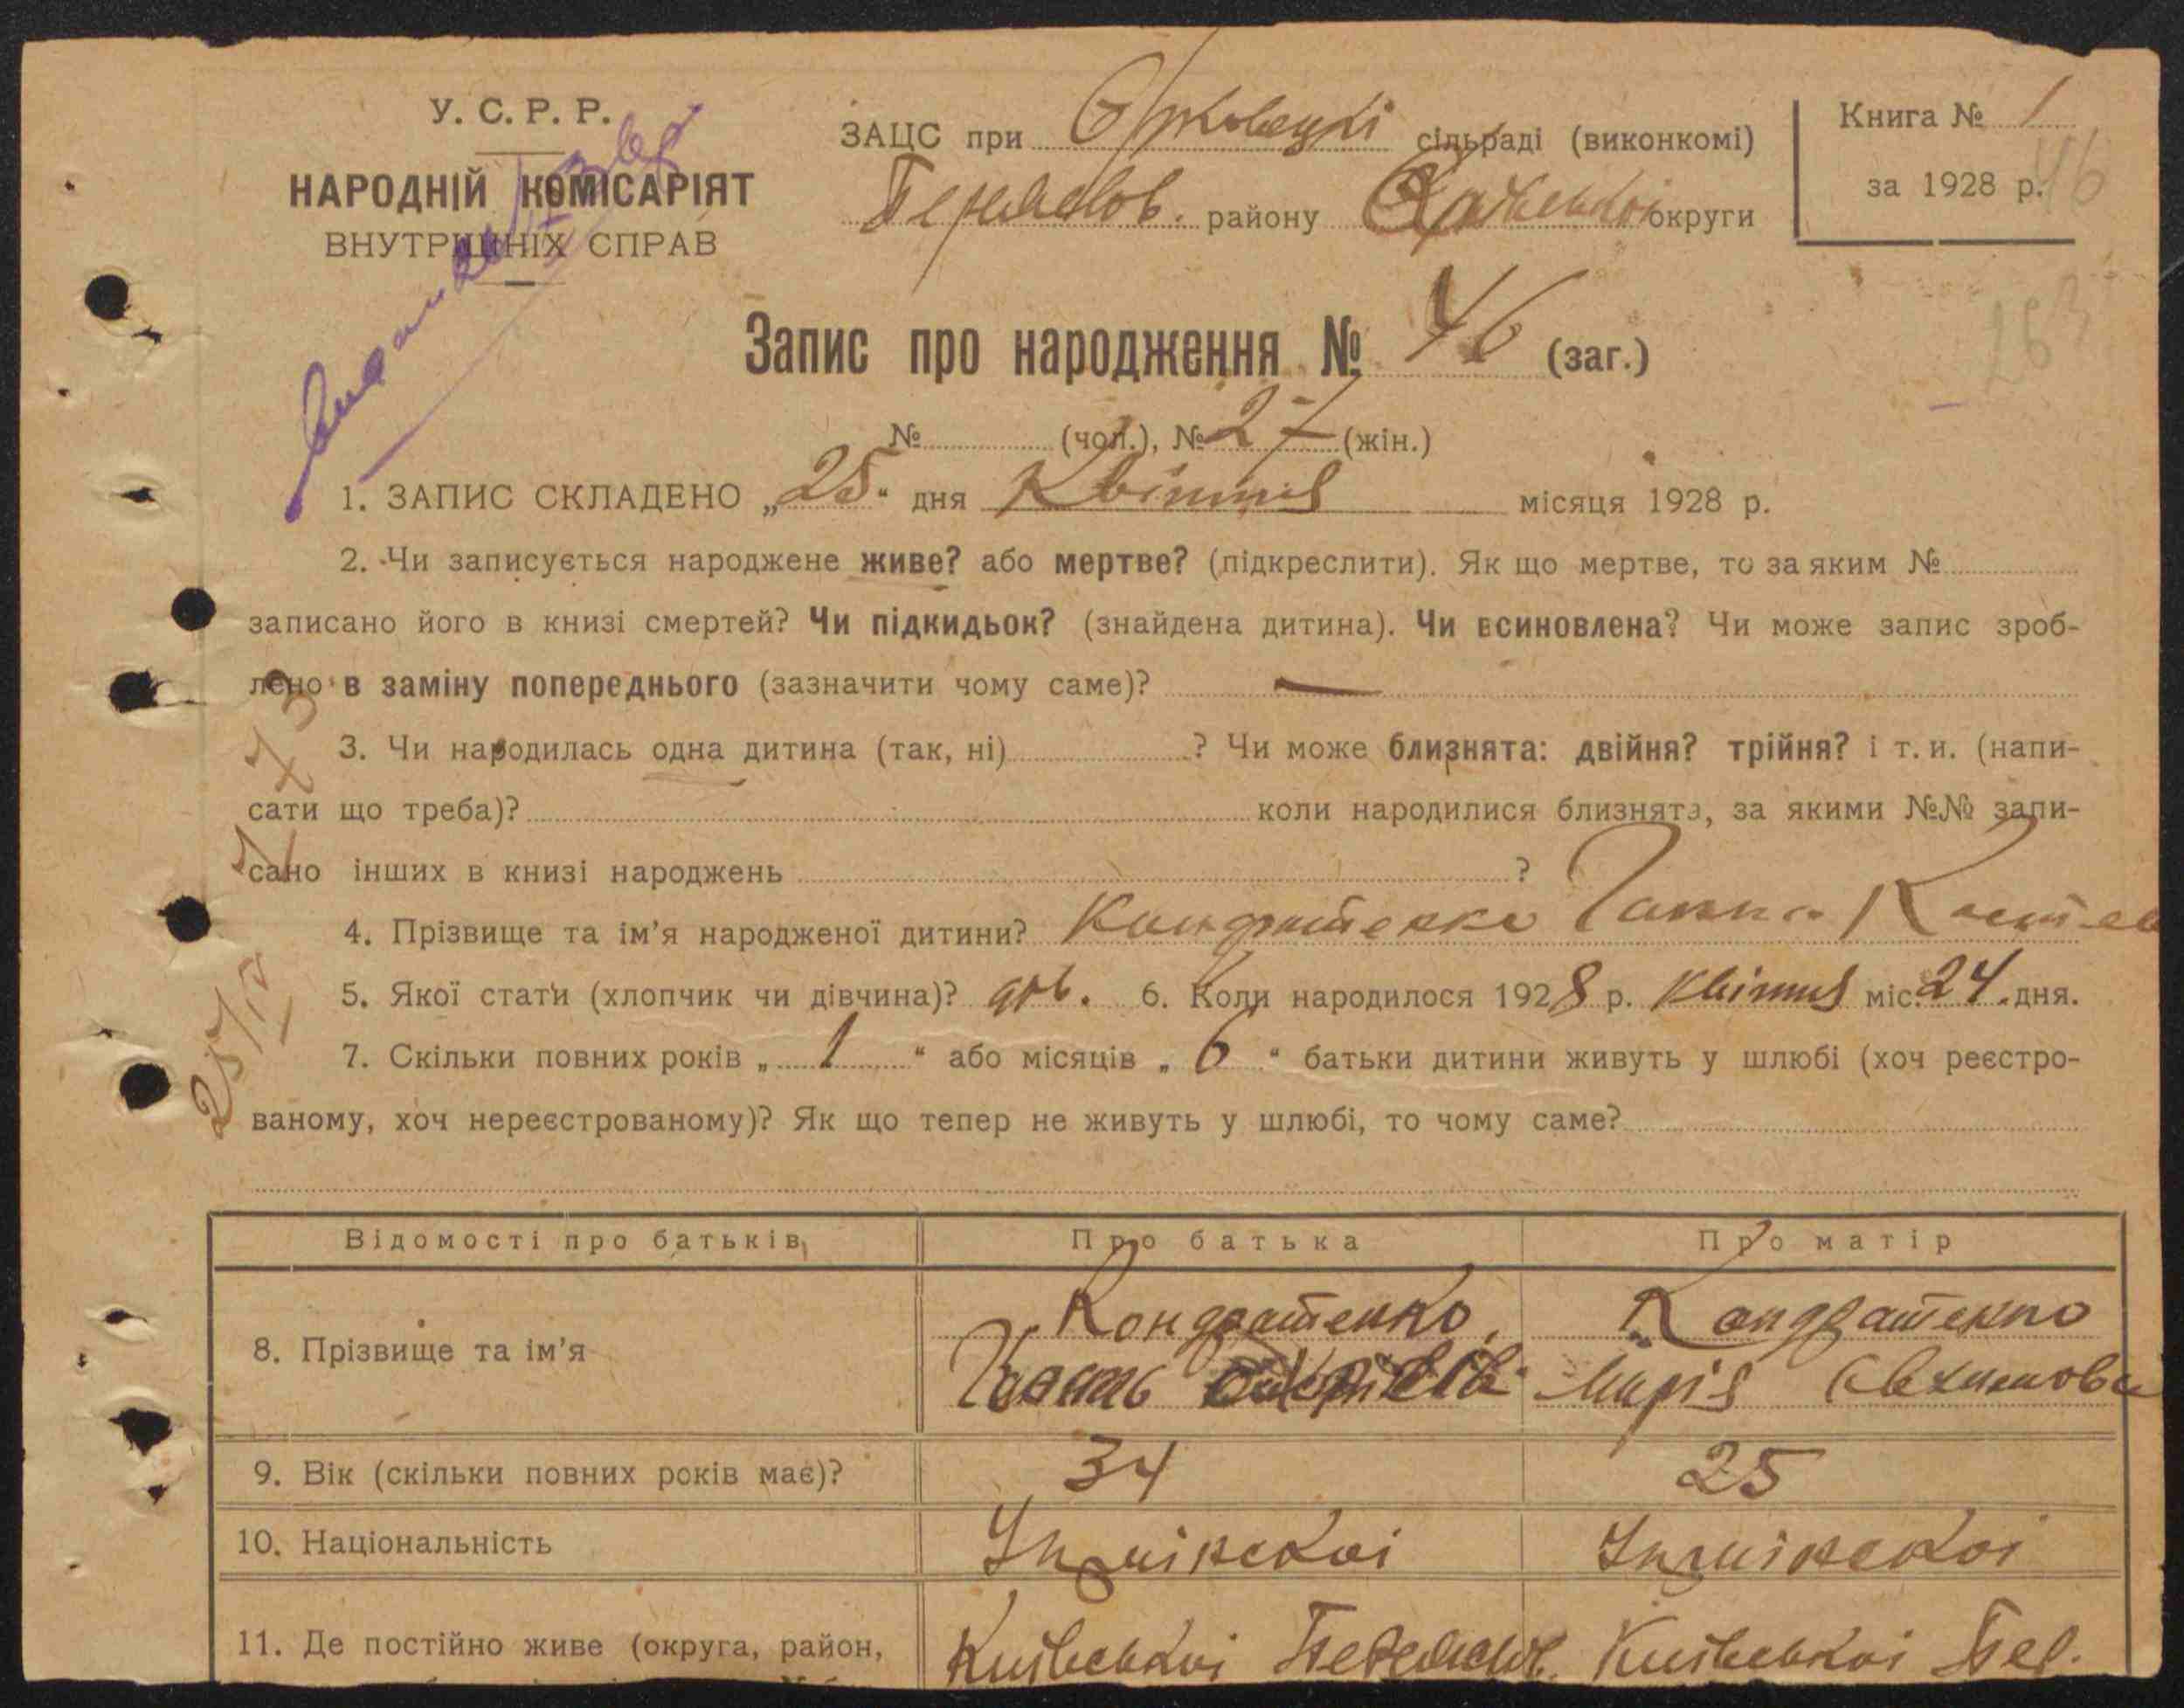 У. С. Р. Р.
НАРОДНІЙ КОМІСАРІЯТ
ВНУТРІШНІХ СПРАВ
ЗАЦС при сільраді (виконкомі)
району округи
Книга № 1
за 1928 р.
46
Запис про народження № 46 (заг.)
№ (чол.), № 27 (жін.)
1. ЗАПИС СКЛАДЕНО „25“ дня Квітня місяця 1928 р.
2. Чи записується народжене живе? або мертве? (підкреслити). Як що мертве, то за яким №
записано його в книзі смертей? Чи підкидьок? (знайдена дитина). Чи всиновлена? Чи може запис зроб-
лено в заміну попереднього (зазначити чому саме)? —
3. Чи народилась одна дитина (так, ні) ? Чи може близнята: двійня? трійня? і т. и. (напи-
сати що треба)? коли народилися близнята, за якими №№ запи-
сано інших в книзі народжень ?
4. Прізвище та ім’я народженої дитини? Кондратенко Ганна
5. Якої стати (хлопчик чи дівчина)? дів. 6. Коли народилося 1928 р. Квітня міс. 24 дня.
7. Скільки повних років „ 1 “ або місяців „ 6 “ батьки дитини живуть у шлюбі (хоч реєстро-
ваному, хоч нереєстрованому)? Як що тепер не живуть у шлюбі, то чому саме?
Відомості про батьків Про батька Про матір
8. Прізвище та ім’я Кондратенко Кондратенко
Марія
9. Вік (скільки повних років має)? 34 25
10. Національність
11. Де постійно живе (округа, район, Київської Київської Пер.